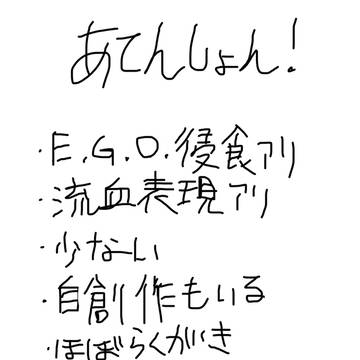 あてんしょん!
・E.G.O.侵食アリ
・流血表現アリ
・少ない
・自創作もいる
・ほぼらくがき